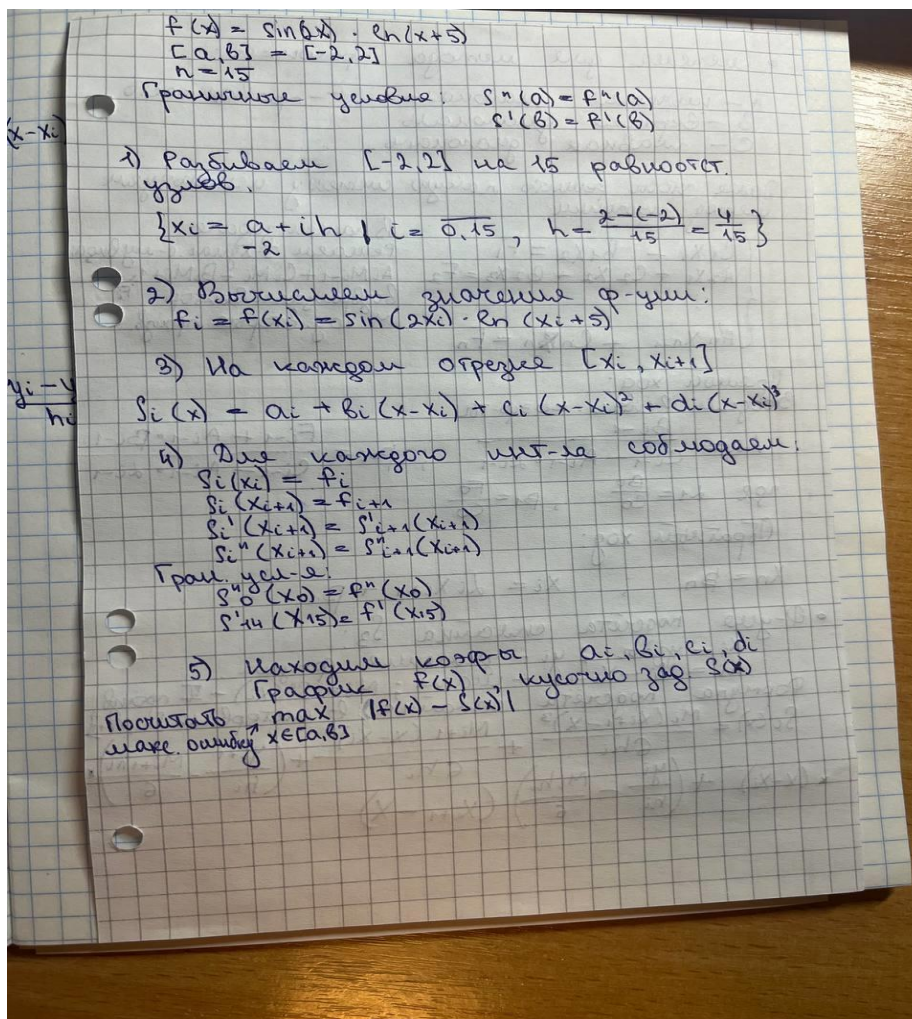 f(x) = sin(2x) · ln(x+5)
[a,b] = [-2,2]
n=15
Граничные условия: S"(a) = f"(a)
S'(b) = f'(b)
(x-xi)
1) Разбиваем [-2,2] на 15 равноотст.
узлов.
{xi = a + ih | i = 0,15, h = 2-(-2)/15 = 4/15}
-2
2) Вычисляем значения ф-ции:
fi = f(xi) = sin(2xi) · ln(xi+5)
3) На каждом отрезке [xi, xi+1]
yi - y
hi
Si(x) = ai + bi(x-xi) + ci(x-xi)² + di(x-xi)³
4) Для каждого инт-ла соблюдаем:
Si(xi) = fi
Si(xi+1) = fi+1
Si'(xi+1) = S'i+1(xi+1)
Si"(xi+1) = S"i+1(xi+1)
Гран. усл-я:
S"0(x0) = f"(x0)
S'14(x15) = f'(x15)
5) Находим коэф-ы ai, bi, ci, di
График f(x), кусочно зад. S(x)
Посчитать max |f(x) - S(x)|
макс. ошибку x∈[a,b]